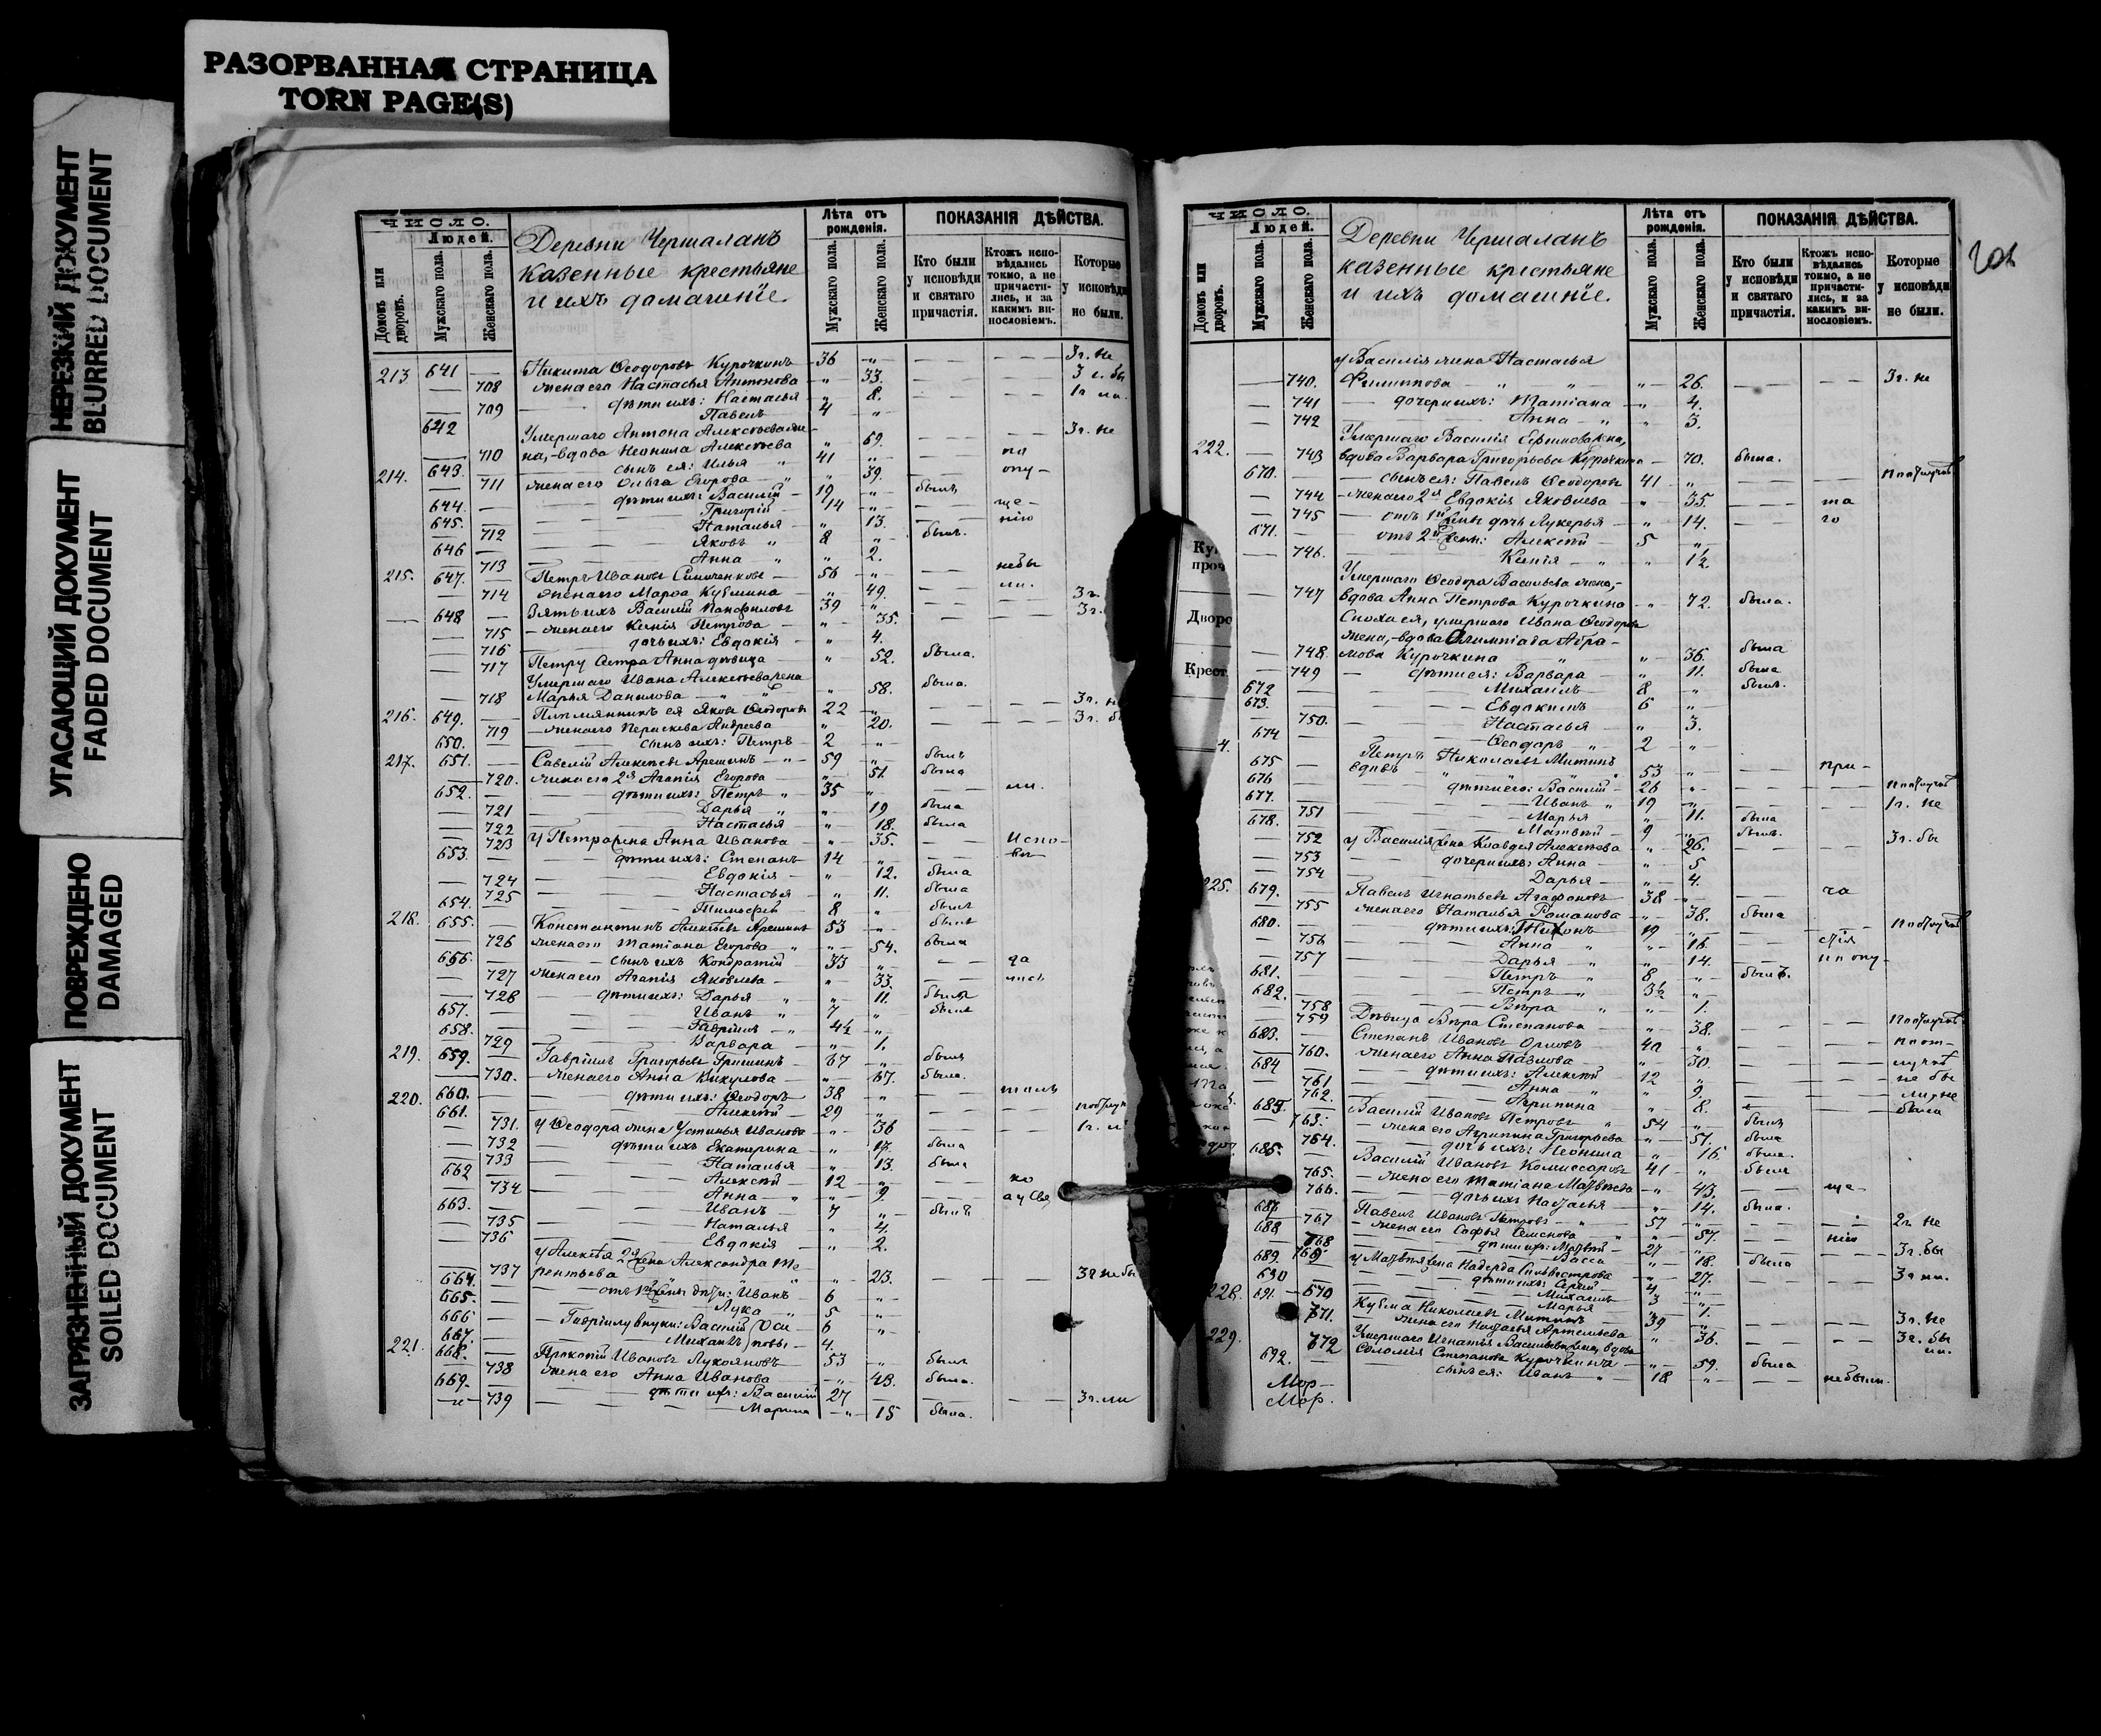 РАЗОРВАННАЯ СТРАНИЦА
TORN PAGE(S)
НЕРЕЗКИЙ ДОКУМЕНТ
BLURRED DOCUMENT
УГАСАЮЩИЙ ДОКУМЕНТ
FADED DOCUMENT
ПОВРЕЖДЕНО
DAMAGED
ЗАГРЯЗНЕННЫЙ ДОКУМЕНТ
SOILED DOCUMENT
ЧИСЛО.
Людей.
Домовъ или дворовъ.
Мужскаго пола.
Женскаго пола.
Деревни Чершаланъ
казенные крестьяне
и ихъ домашніе.
Лѣта отъ рожденія.
Мужскаго пола.
Женскаго пола.
ПОКАЗАНІЯ ДѢЙСТВА.
Кто были у исповѣди и святаго причастія.
Ктожъ исповѣдались токмо, а не причастились, и за какимъ винословіемъ.
Которые у исповѣди не были.
213. 641 — Никита Ѳеодоровъ Курочкинъ 36 3 г. не
708 жена его Настасья Антонова 33.
709 дѣти ихъ: Настасья 8.
642 Павелъ 4
Умершаго Антона Алексѣева же-
710 на,-вдова Неонила Алексѣева 69. 3 г. не
214. 643. сынъ ея: Илья 41 по
711 жена его Ольга Егорова 39. опу-
644. дѣти ихъ: Василій 19 былъ
645. Григорій 14 ще-
712 Наталья 13. нію
646 Яковъ 8 былъ.
713 Анна 2.
215. 647. Петръ Ивановъ 56 небы
714 жена его Марѳа Кузмина 49. ли.
648 Зять ихъ Василій Панфиловъ 39 3 г.
715 жена его Ксенія Петрова 35. 3 г.
716 дочь ихъ: Евдокія 4.
717 Петру сестра Анна дѣвица 52. была.
Умершаго Ивана Алексѣева жена
718 Марья Данилова 58. была.
216. 649. Племянникъ ея Яковъ Ѳеодоровъ 22 3 г. не
719 жена его Параскева Андреева 20. 3 г. бы
650. сынъ ихъ: Петръ 2
217. 651. Савелій Алексѣевъ Ярешинъ 59 былъ
720. жена его 2я Агапія Егорова 51. была
652. дѣти ихъ: Петръ 35 ли.
721 Дарья 19 была
722 Настасья 18. была
723 у Петра жена Анна Иванова 35. Испо-
653. дѣти ихъ: Степанъ 14
724 Евдокія 12. была
725 Настасья 11. была
654. Тимоѳей 8 былъ
218. 655. Константинъ Алексѣевъ Ярешинъ 53 былъ
726 жена его Татіана Егорова 54. была
656. сынъ ихъ Кондратій 33 да
727 жена его Агапія Яковлева 33. лись
728 дѣти ихъ: Дарья 11. была
657. Иванъ 7 былъ
658. Гавріилъ 4½
729 Варвара 1.
219. 659. Гавріилъ Григорьевъ Гришинъ 67 былъ
730. жена его Анна Никулова 67. была.
220. 660. дѣти ихъ: Ѳеодоръ 38
661. Алексѣй 29
731. у Ѳеодора жена Устинья Иванова 36
732 дѣти ихъ Екатерина 17. была
733 Наталья 13. была
662 Алексѣй 12 ко
734 Анна 9
663. Иванъ 7 былъ
735 Наталья 4.
736 Евдокія 2.
у Алексѣя 2я жена Александра Те
737 рентьева 23. 3 г. не бы
664. отъ 1й жены дѣти: Иванъ 6
665. Лука 5
666 Гавріилу внуки: Василій 6
667. Михаилъ 4.
221. 668. Прокопій Ивановъ Лукояновъ 53 былъ
738 жена его Анна Иванова 48. была.
669. дѣти ихъ: Василій 27 3 г. ли
739 Марина 15 была.
ЧИСЛО.
Людей.
Домовъ или дворовъ.
Мужскаго пола.
Женскаго пола.
Деревни Чершаланъ
казенные крестьяне
и ихъ домашніе.
Лѣта отъ рожденія.
Мужскаго пола.
Женскаго пола.
ПОКАЗАНІЯ ДѢЙСТВА.
Кто были у исповѣди и святаго причастія.
Ктожъ исповѣдались токмо, а не причастились, и за какимъ винословіемъ.
Которые у исповѣди не были.
у Василія жена Настасья
740. Филиппова 26. 3 г. не
741 дочери ихъ: Татіана 4.
742 Анна 3.
Умершаго Василія Ефимова жена,
222. 743 вдова Варвара Григорьева Курочкина 70. была.
670. сынъ ея: Павелъ Ѳеодоровъ 41
744 жена его 2я Евдокія Яковлева 35. та
745 отъ 1й жены дочь Лукерья 14. го
671. отъ 2й жены: Алексѣй 5
746. Ксенія 1½
Умершаго Ѳеодора Васильева жена,-
747 вдова Анна Петрова Курочкина 72. была.
Сноха ея, умершаго Ивана Ѳеодорова
жена,-вдова Олимпіада Абра-
748. мова Курочкина 36. была
749 дѣти ея: Варвара 11. была
672 Михаилъ 8 былъ.
673. Евдокимъ 6
750. Настасья 3.
674 Ѳеодоръ 2
675 Петръ Николаевъ Митинъ
вдовъ 53 при-
676 дѣти его: Василій 26
677. Иванъ 19 1 г. не
751 Марья 11. была
678. Матвѣй 9 былъ.
752 у Василія жена Клавдія Алексѣева 26. 3 г. бы
753 дочери ихъ: Анна 5
754 Дарья 4.
225. 679. Павелъ Игнатьевъ Агафоновъ 38 ча
755 жена его Наталья Романова 38. была
680. дѣти ихъ: Тихонъ 19
756 Анна 16. стія
757 Дарья 14. по опу-
681. Петръ 8 былъ.
682. Петръ 3½
758 Вѣра 1.
759 Дѣвица Вѣра Степанова 38.
683. Степанъ Ивановъ Орловъ 40
760. жена его Анна Павлова 30.
684 дѣти ихъ: Алексѣй 12 не бы
761 Анна 9.
762. Агрипина 8.
685. Василій Ивановъ Петровъ 54 былъ
763. жена его Агрипина Григорьева 51. была
764. дочь ихъ: Неонила 16 была.
686. Василій Ивановъ Комиссаровъ 41 былъ
765. жена его Татіана Матвѣева 43. ще-
766. дочь ихъ Настасья 14. была.
687 Павелъ Ивановъ Петровъ 57 2 г. не
767 жена его Софья Семенова 57. нію
688 дѣти ихъ: Матвѣй 27 3 г. бы
768 Васса 18. была
769 у Матвѣя жена Надежда Сильвестрова 27. 3 г. ли.
689. дѣти ихъ: Сергій 4
690 Михаилъ 3
670 Марья 1.
228. 691. Кузма Николаевъ Митинъ 39 3 г. не
671. жена его Наталья Артемьева 36. 3 г. бы
Умершаго Игнатія Васильева жена, вдова ли.
229. 672 Соломія Степанова Курочкина 59. была
692. сынъ ея: Иванъ 18 не были.
Мор
Мор.